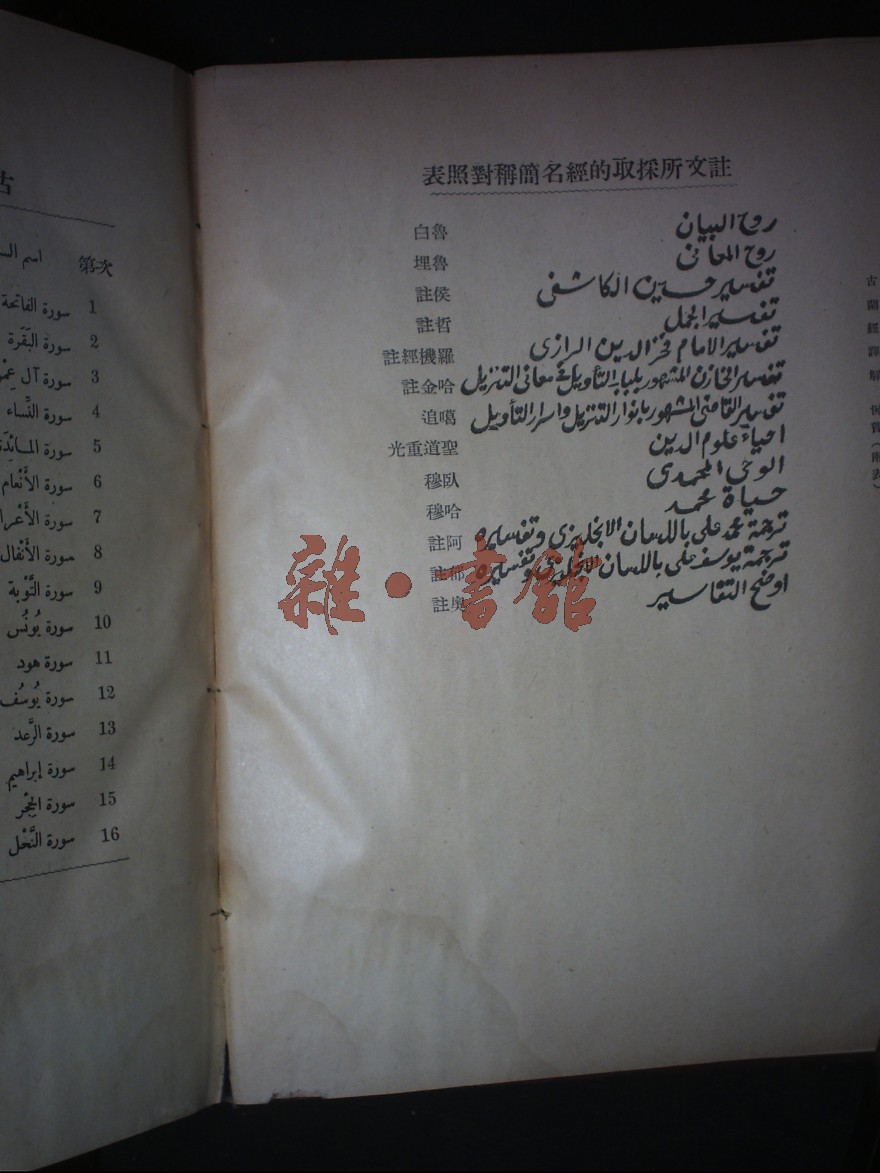 註文所採取的經名簡稱對照表
روح البيان 魯白
روح المعانى 魯埋
تفسير حسين الكاشفى 侯註
تفسير الجمل 哲註
تفسير الامام فخر الدين الرازى 羅機經註
تفسير الخازن المشهور بلباب التأويل فى معانى التنزيل 哈金註
تفسير القاضى المشهور بانوار التنزيل واسرار التأويل 噶追
احياء علوم الدين 聖道重光
الوحى المحمدى 臥穆
حياة محمد 哈穆
ترجمة محمد على باللسان الانجليزى وتفسيره 阿註
ترجمة يوسف على باللسان الانجليزى وتفسيره 郁註
اوضح التفاسير 奧註
雜·書館
古蘭經譯解
古
第次 اسم
1 سورة الفاتحة
2 سورة البَقَرة
3 سورة آل
4 سورة النِّساء
5 سورة المائدة
6 سورة الأنْعام
7 سورة
8 سورة الأنْفال
9 سورة التَّوْبة
10 سورة يُونُس
11 سورة هود
12 سورة يُوسُف
13 سورة الرَّعد
14 سورة إبراهيم
15 سورة الحِجْر
16 سورة النَّحْل